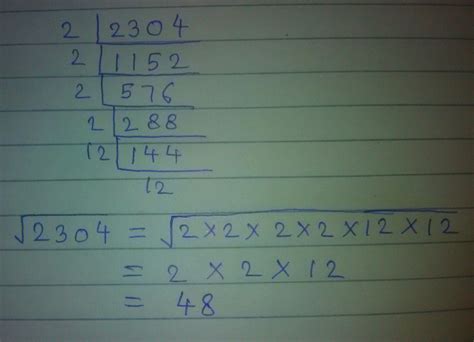 2 | 2304
2 | 1152
2 | 576
2 | 288
12 | 144
12
√2304 = √2×2×2×2×12×12
= 2 × 2 × 12
= 48